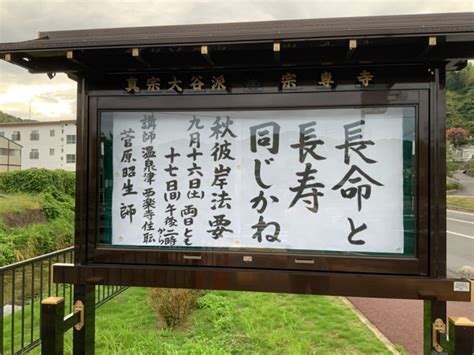 真宗大谷派 宗専寺
長命と
長寿
同じかね
秋彼岸法要
九月十六日(土)両日とも
十七日(日)午後二時から
講師 温泉津 西楽寺住職
菅原昭生師